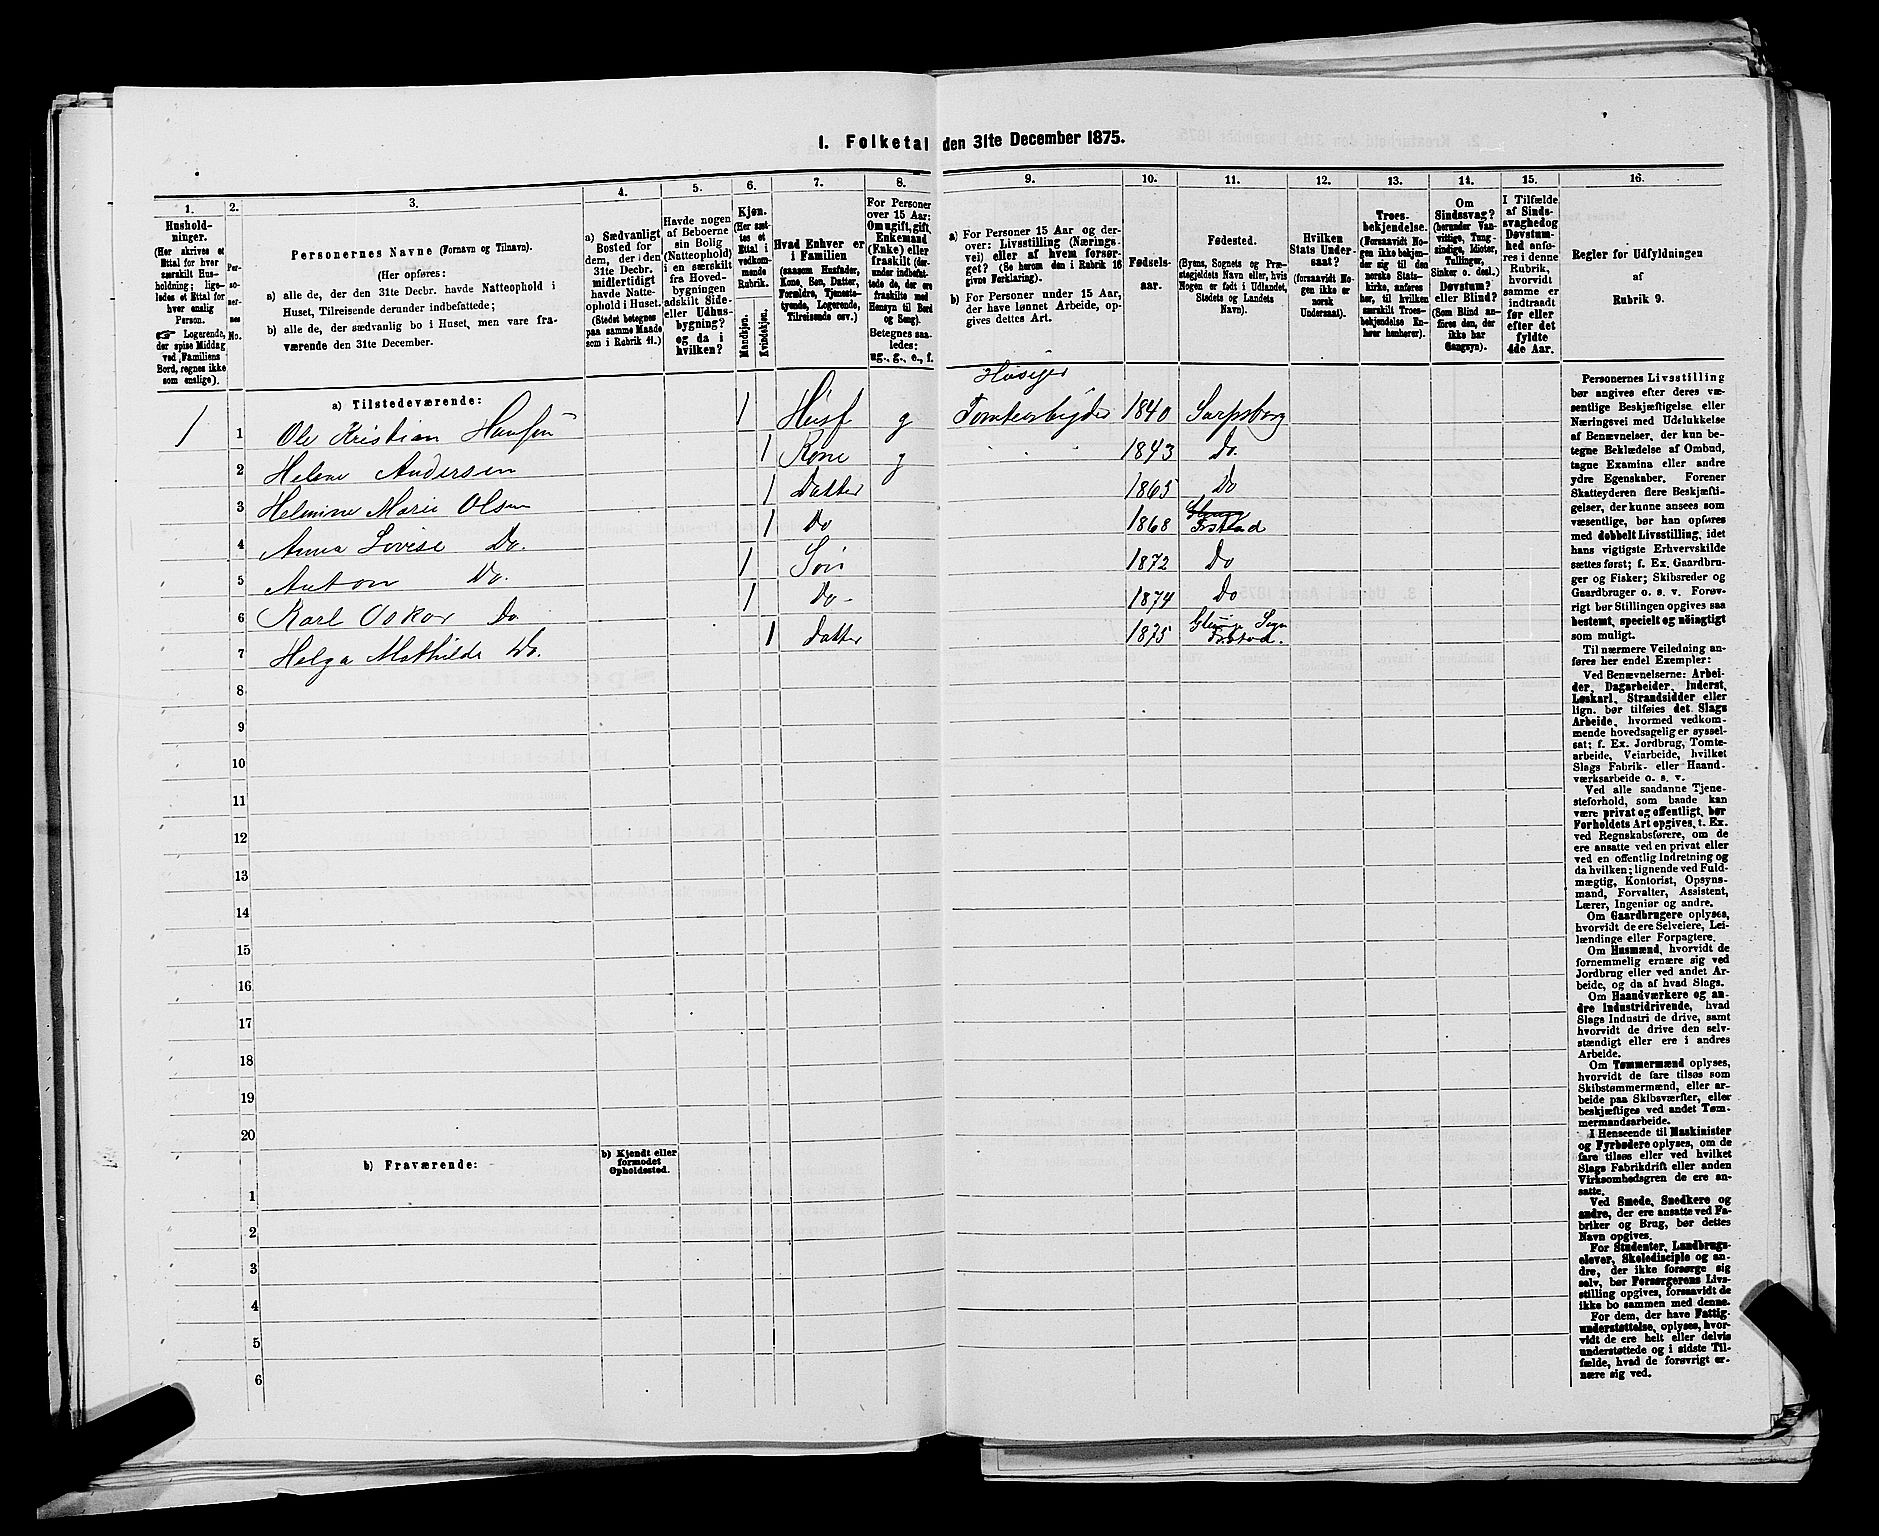 1. Folketal den 31te December 1875.
1.
2.
3.
4.
5.
6.
7.
8.
9.
10.
11.
12.
13.
14.
15.
16.
Hushold-
ninger.
(Her skrives et
Ettal for hver
særskilt Hus-
holdning; lige-
ledes et Ettal for
hver enslig
Person.
☞ Logerende,
der spise Middag
ved Familiens
Bord, regnes ikke
som enslige).
Per-
so-
ner-
nes
No.
Personernes Navne (Fornavn og Tilnavn).
(Her opføres:
a) alle de, der den 31te Decbr. havde Natteophold i
Huset, Tilreisende derunder indbefattede;
b) alle de, der sædvanlig bo i Huset, men vare fra-
værende den 31te December.
a) Sædvanligt
Bosted for
dem, der i den
31te Decbr.
midlertidigt
havde Natte-
ophold i Huset.
(Stedet betegnes
paa samme Maade
som i Rubrik 11.)
Havde nogen
af Beboerne
sin Bolig
(Natteophold)
i en særskilt
fra Hoved-
bygningen
adskilt Side-
eller Udhus-
bygning?
og da i
hvilken?
Kjøn.
(Her sæt-
tes et
Ettal i
vedkom-
mende
Rubrik.
Mandkjøn.
Kvindekjøn.
Hvad Enhver er
i Familien
(saasom Husfader,
Kone, Søn, Datter,
Forældre, Tjeneste-
tyende, Logerende,
Tilreisende osv.)
For Personer
over 15 Aar:
Om ugift, gift,
Enkemand
(Enke) eller
fraskilt (der-
under indbefat-
tede de, der ere
fraskilte med
Hensyn til Bord
og Seng).
Betegnes saa-
ledes:
ug., g., e., f.
a) For Personer 15 Aar og der-
over: Livsstilling (Nærings-
vei) eller af hvem forsør-
get? (Se herom den i Rubrik 16
givne Forklaring).
b) For Personer under 15 Aar,
der have lønnet Arbeide, op-
gives dettes Art.
Fødsels-
aar.
Fødested.
(Byens, Sognets og Præ-
stegjeldets Navn eller, hvis
Nogen er født i Udlandet,
Stedets og Landets
Navn).
Hvilken
Stats Under-
saat?
(forsaavidt No-
gen ikke er
norsk
Undersaat).
Troes-
bekjendelse.
(Forsaavidt No-
gen ikke bekjen-
der sig til den
norske Stats-
kirke, anføres
her, til hvilken
særskilt Troes-
bekjendelse En-
hver henhører).
Om
Sindssvag?
(herunder Van-
vittige, Tung-
sindige, Idioter,
Tullinger,
Sinker o. desl.)
Døvstum?
eller Blind?
(Som Blind an-
føres den, der
ikke har
Gangsyn).
I Tilfælde
af Sinds-
svaghed og
Døvstum-
hed anfø-
res i denne
Rubrik,
hvorvidt
samme er
indtraadt
før eller
efter det
fyldte
4de Aar.
Regler for Udfyldningen
af
Rubrik 9.
a) Tilstedeværende:
Huseier
1 1 Ole Kristian Hansen 1 Husf g Tomtearbeider 1840 Sarpsborg
2 Helene Andersen 1 Kone g 1843 Do.
3 Helmine Marie Olsen 1 Datter 1865 Do
4 Anna Lovise Do. 1 Do 1868 Tistad
5 Anton Do. 1 Søn 1872 Do
6 Karl Oskar Do 1 Do - 1874 Do
7 Helga Mathilde Do. 1 Datter 1875
8
9
10
11
12
13
14
15
16
17
18
19
20
b) Fraværende:
b) Kjendt eller
formodet
Opholdssted.
1
2
3
4
5
6
Personernes Livsstilling
bør angives efter deres væ-
sentlige Beskjæftigelse eller
Næringsvei med Udelukkelse
af Benævnelser, der kun be-
tegne Beklædelse af Ombud,
tagne Examina eller andre
ydre Egenskaber. Forener
Skatteyderen flere Beskjæfti-
gelser, der kunne ansees som
væsentlige, bør han opføres
med dobbelt Livsstilling, idet
hans vigtigste Erhvervskilde
sættes først; f. Ex. Gaardbru-
ger og Fisker; Skibsreder og
Gaardbruger o. s. v. Forøv-
rigt bør Stillingen opgives saa
bestemt, specielt og nøiagtigt
som muligt.
Til nærmere Veiledning an-
føres her endel Exempler:
Ved Benævnelserne: Arbei-
der, Dagarbeider, Inderst,
Løskarl, Strandsidder eller
lign. bør tilføies det Slags
Arbeide, hvormed vedkom-
mende hovedsagelig er syssel-
sat; f. Ex. Jordbrug, Tomte-
arbeide, Veiarbeide, hvilket
Slags Fabrik- eller Haand-
værksarbeide o. s. v.
Ved alle saadanne Tjene-
steforhold, som baade kan
være privat og offentligt, bør
Forholdets Art opgives, t. Ex.
ved Regnskabsførere, om de
ere ansatte ved en privat eller
ved en offentlig Indretning og
da hvilken; lignende ved Fuld-
mægtig, Kontorist, Opsyns-
mand, Forvalter, Assistent,
Lærer, Ingeniør og andre.
Om Gaardbrugere oplyses,
hvorvidt de ere Selveiere, Lei-
lændinge eller Forpagtere.
Om Husmænd, hvorvidt de
fornemmelig ernære sig ved
Jordbrug eller ved andet Ar-
beide, og da af hvad Slags.
Om Haandværkere og an-
dre Industridrivende, hvad
Slags Industri de drive, samt
hvorvidt de drive den selv-
stændigt eller ere i andres
Arbeide.
Om Tømmermænd oplyses,
hvorvidt de fare tilsøs som
Skibstømmermænd, eller ar-
beide paa Skibsværfter, eller
beskjæftiges ved andet Tøm-
mermandsarbeide.
I Henseende til Maskinister
og Fyrbødere oplyses, om de
fare tilsøs eller ved hvilket
Slags Fabrikdrift eller anden
Virksomhedsgren de ere an-
satte.
Ved Smede, Snedkere og
andre, der ere ansatte ved Fa-
briker og Brug, bør dettes
Navn opgives.
For Studenter, Landbrugs-
elever, Skoledisciple og an-
dre, der ikke forsørge sig
selv, bør Forsørgerens Livs-
stilling opgives, forsaavidt de
ikke bo sammen med denne.
For dem, der have Fattig-
understøttelse, oplyses, hvor-
vidt de ere helt eller delvis
understøttede og i sidste Til-
fælde, hvad de forøvrigt er-
nære sig ved.